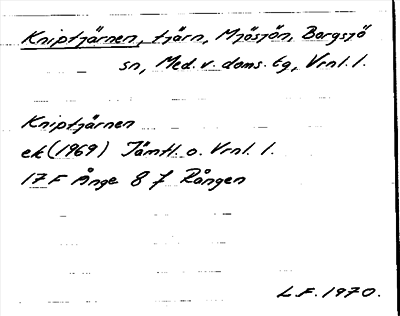 Kniptjärnen, tjärn, Mjösjön, Borgsjö
sn, Med. v. doms. tg, Vrnl. l.
Kniptjärnen
ek (1969) Jämtl. o. Vrnl. l.
17 F Ånge 8 f Rången
L.F. 1970.